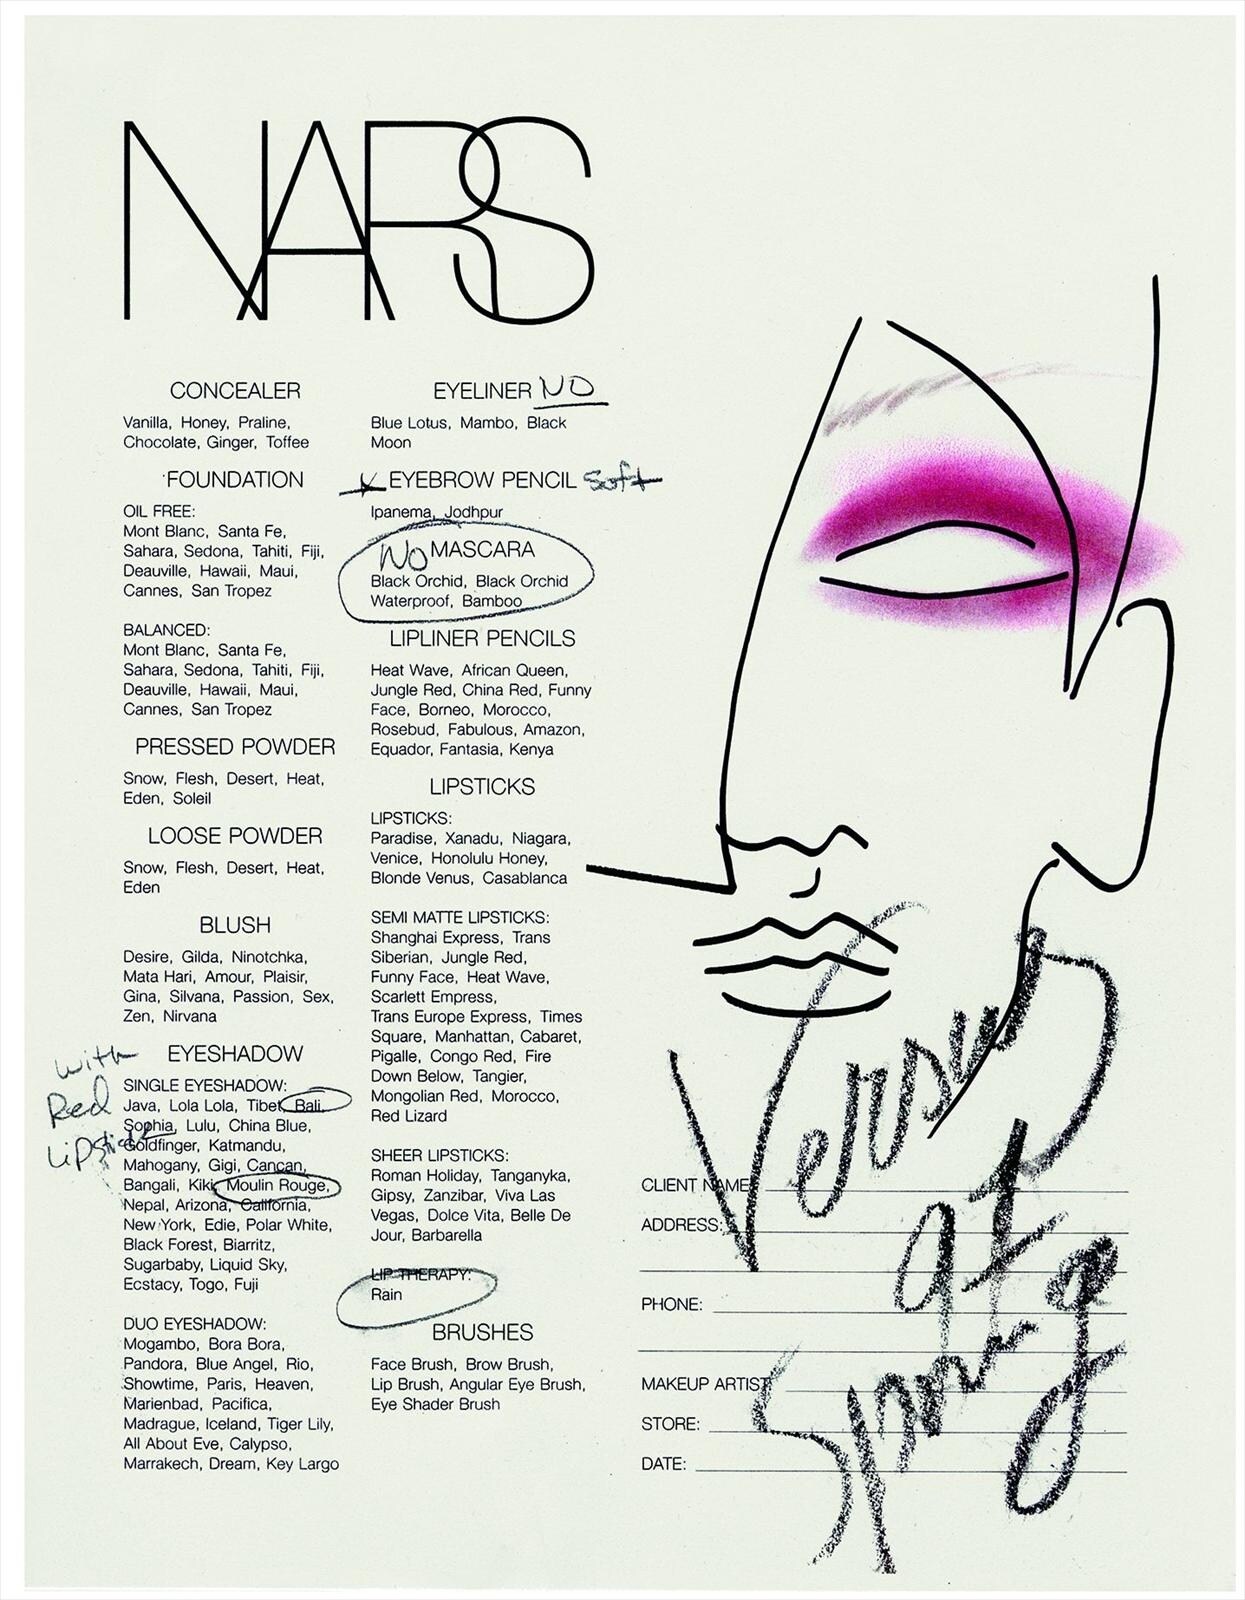 NARS
CONCEALER
Vanilla, Honey, Praline,
Chocolate, Ginger, Toffee
FOUNDATION
OIL FREE:
Mont Blanc, Santa Fe,
Sahara, Sedona, Tahiti, Fiji,
Deauville, Hawaii, Maui,
Cannes, San Tropez
BALANCED:
Mont Blanc, Santa Fe,
Sahara, Sedona, Tahiti, Fiji,
Deauville, Hawaii, Maui,
Cannes, San Tropez
PRESSED POWDER
Snow, Flesh, Desert, Heat,
Eden, Soleil
LOOSE POWDER
Snow, Flesh, Desert, Heat,
Eden
BLUSH
Desire, Gilda, Ninotchka,
Mata Hari, Amour, Plaisir,
Gina, Silvana, Passion, Sex,
Zen, Nirvana
EYESHADOW
with
Red
Lipstick
SINGLE EYESHADOW:
Java, Lola Lola, Tibet, Bali,
Sophia, Lulu, China Blue,
Goldfinger, Katmandu,
Mahogany, Gigi, Cancan,
Bangali, Kiki, Moulin Rouge,
Nepal, Arizona, California,
New York, Edie, Polar White,
Black Forest, Biarritz,
Sugarbaby, Liquid Sky,
Ecstacy, Togo, Fuji
DUO EYESHADOW:
Mogambo, Bora Bora,
Pandora, Blue Angel, Rio,
Showtime, Paris, Heaven,
Marienbad, Pacifica,
Madrague, Iceland, Tiger Lily,
All About Eve, Calypso,
Marrakech, Dream, Key Largo
EYELINER NO
Blue Lotus, Mambo, Black
Moon
EYEBROW PENCIL Soft
Ipanema, Jodhpur
NO MASCARA
Black Orchid, Black Orchid
Waterproof, Bamboo
LIPLINER PENCILS
Heat Wave, African Queen,
Jungle Red, China Red, Funny
Face, Borneo, Morocco,
Rosebud, Fabulous, Amazon,
Equador, Fantasia, Kenya
LIPSTICKS
LIPSTICKS:
Paradise, Xanadu, Niagara,
Venice, Honolulu Honey,
Blonde Venus, Casablanca
SEMI MATTE LIPSTICKS:
Shanghai Express, Trans
Siberian, Jungle Red,
Funny Face, Heat Wave,
Scarlett Empress,
Trans Europe Express, Times
Square, Manhattan, Cabaret,
Pigalle, Congo Red, Fire
Down Below, Tangier,
Mongolian Red, Morocco,
Red Lizard
SHEER LIPSTICKS:
Roman Holiday, Tanganyka,
Gipsy, Zanzibar, Viva Las
Vegas, Dolce Vita, Belle De
Jour, Barbarella
LIP THERAPY:
Rain
BRUSHES
Face Brush, Brow Brush,
Lip Brush, Angular Eye Brush,
Eye Shader Brush
CLIENT NAME:
ADDRESS:
PHONE:
MAKEUP ARTIST:
STORE:
DATE:
Versus
at
Spring